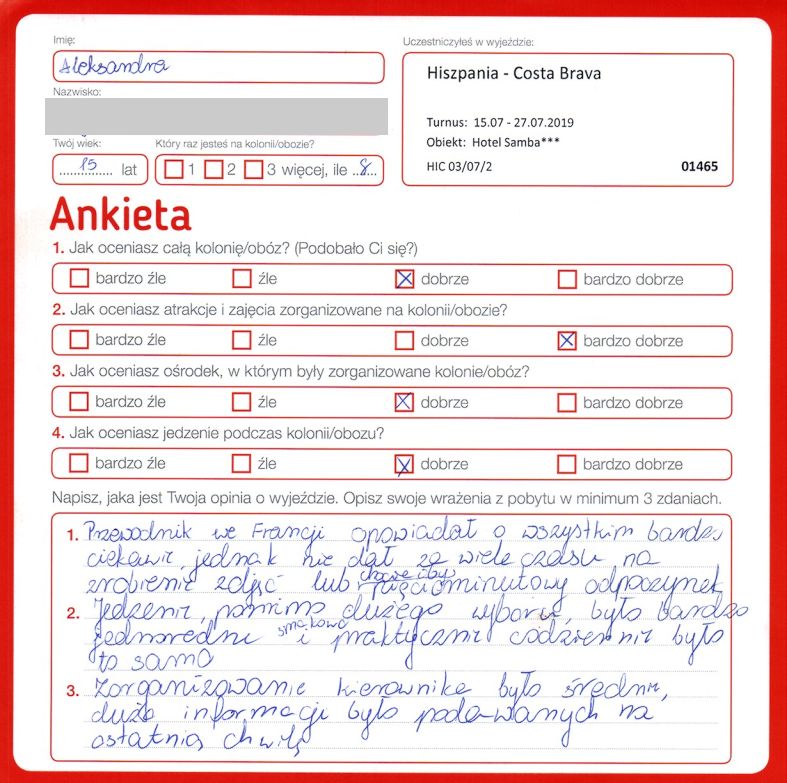 Imię:
Aleksandra
Uczestniczyłeś w wyjeździe:
Hiszpania - Costa Brava
Nazwisko:
Turnus: 15.07 - 27.07.2019
Obiekt: Hotel Samba***
HIC 03/07/2 01465
Twój wiek: Który raz jesteś na kolonii/obozie?
15 lat 1 2 3 więcej, ile ..8...
Ankieta
1. Jak oceniasz całą kolonię/obóz? (Podobało Ci się?)
bardzo źle źle dobrze bardzo dobrze
2. Jak oceniasz atrakcje i zajęcia zorganizowane na kolonii/obozie?
bardzo źle źle dobrze bardzo dobrze
3. Jak oceniasz ośrodek, w którym były zorganizowane kolonie/obóz?
bardzo źle źle dobrze bardzo dobrze
4. Jak oceniasz jedzenie podczas kolonii/obozu?
bardzo źle źle dobrze bardzo dobrze
Napisz, jaka jest Twoja opinia o wyjeździe. Opisz swoje wrażenia z pobytu w minimum 3 zdaniach.
1. Przewodnik we Francji opowiadał o wszystkim bardzo
ciekawie, jednak nie dał za wiele czasu na
zrobienie zdjęć lub chociażby pięciominutowy odpoczynek
2. Jedzenie, pomimo dużego wyboru, było bardzo
jednorodne smakowo i praktycznie codziennie było
to samo
3. Zorganizowanie kierownika było średnie,
dużo informacji było podawanych na
ostatnią chwilę